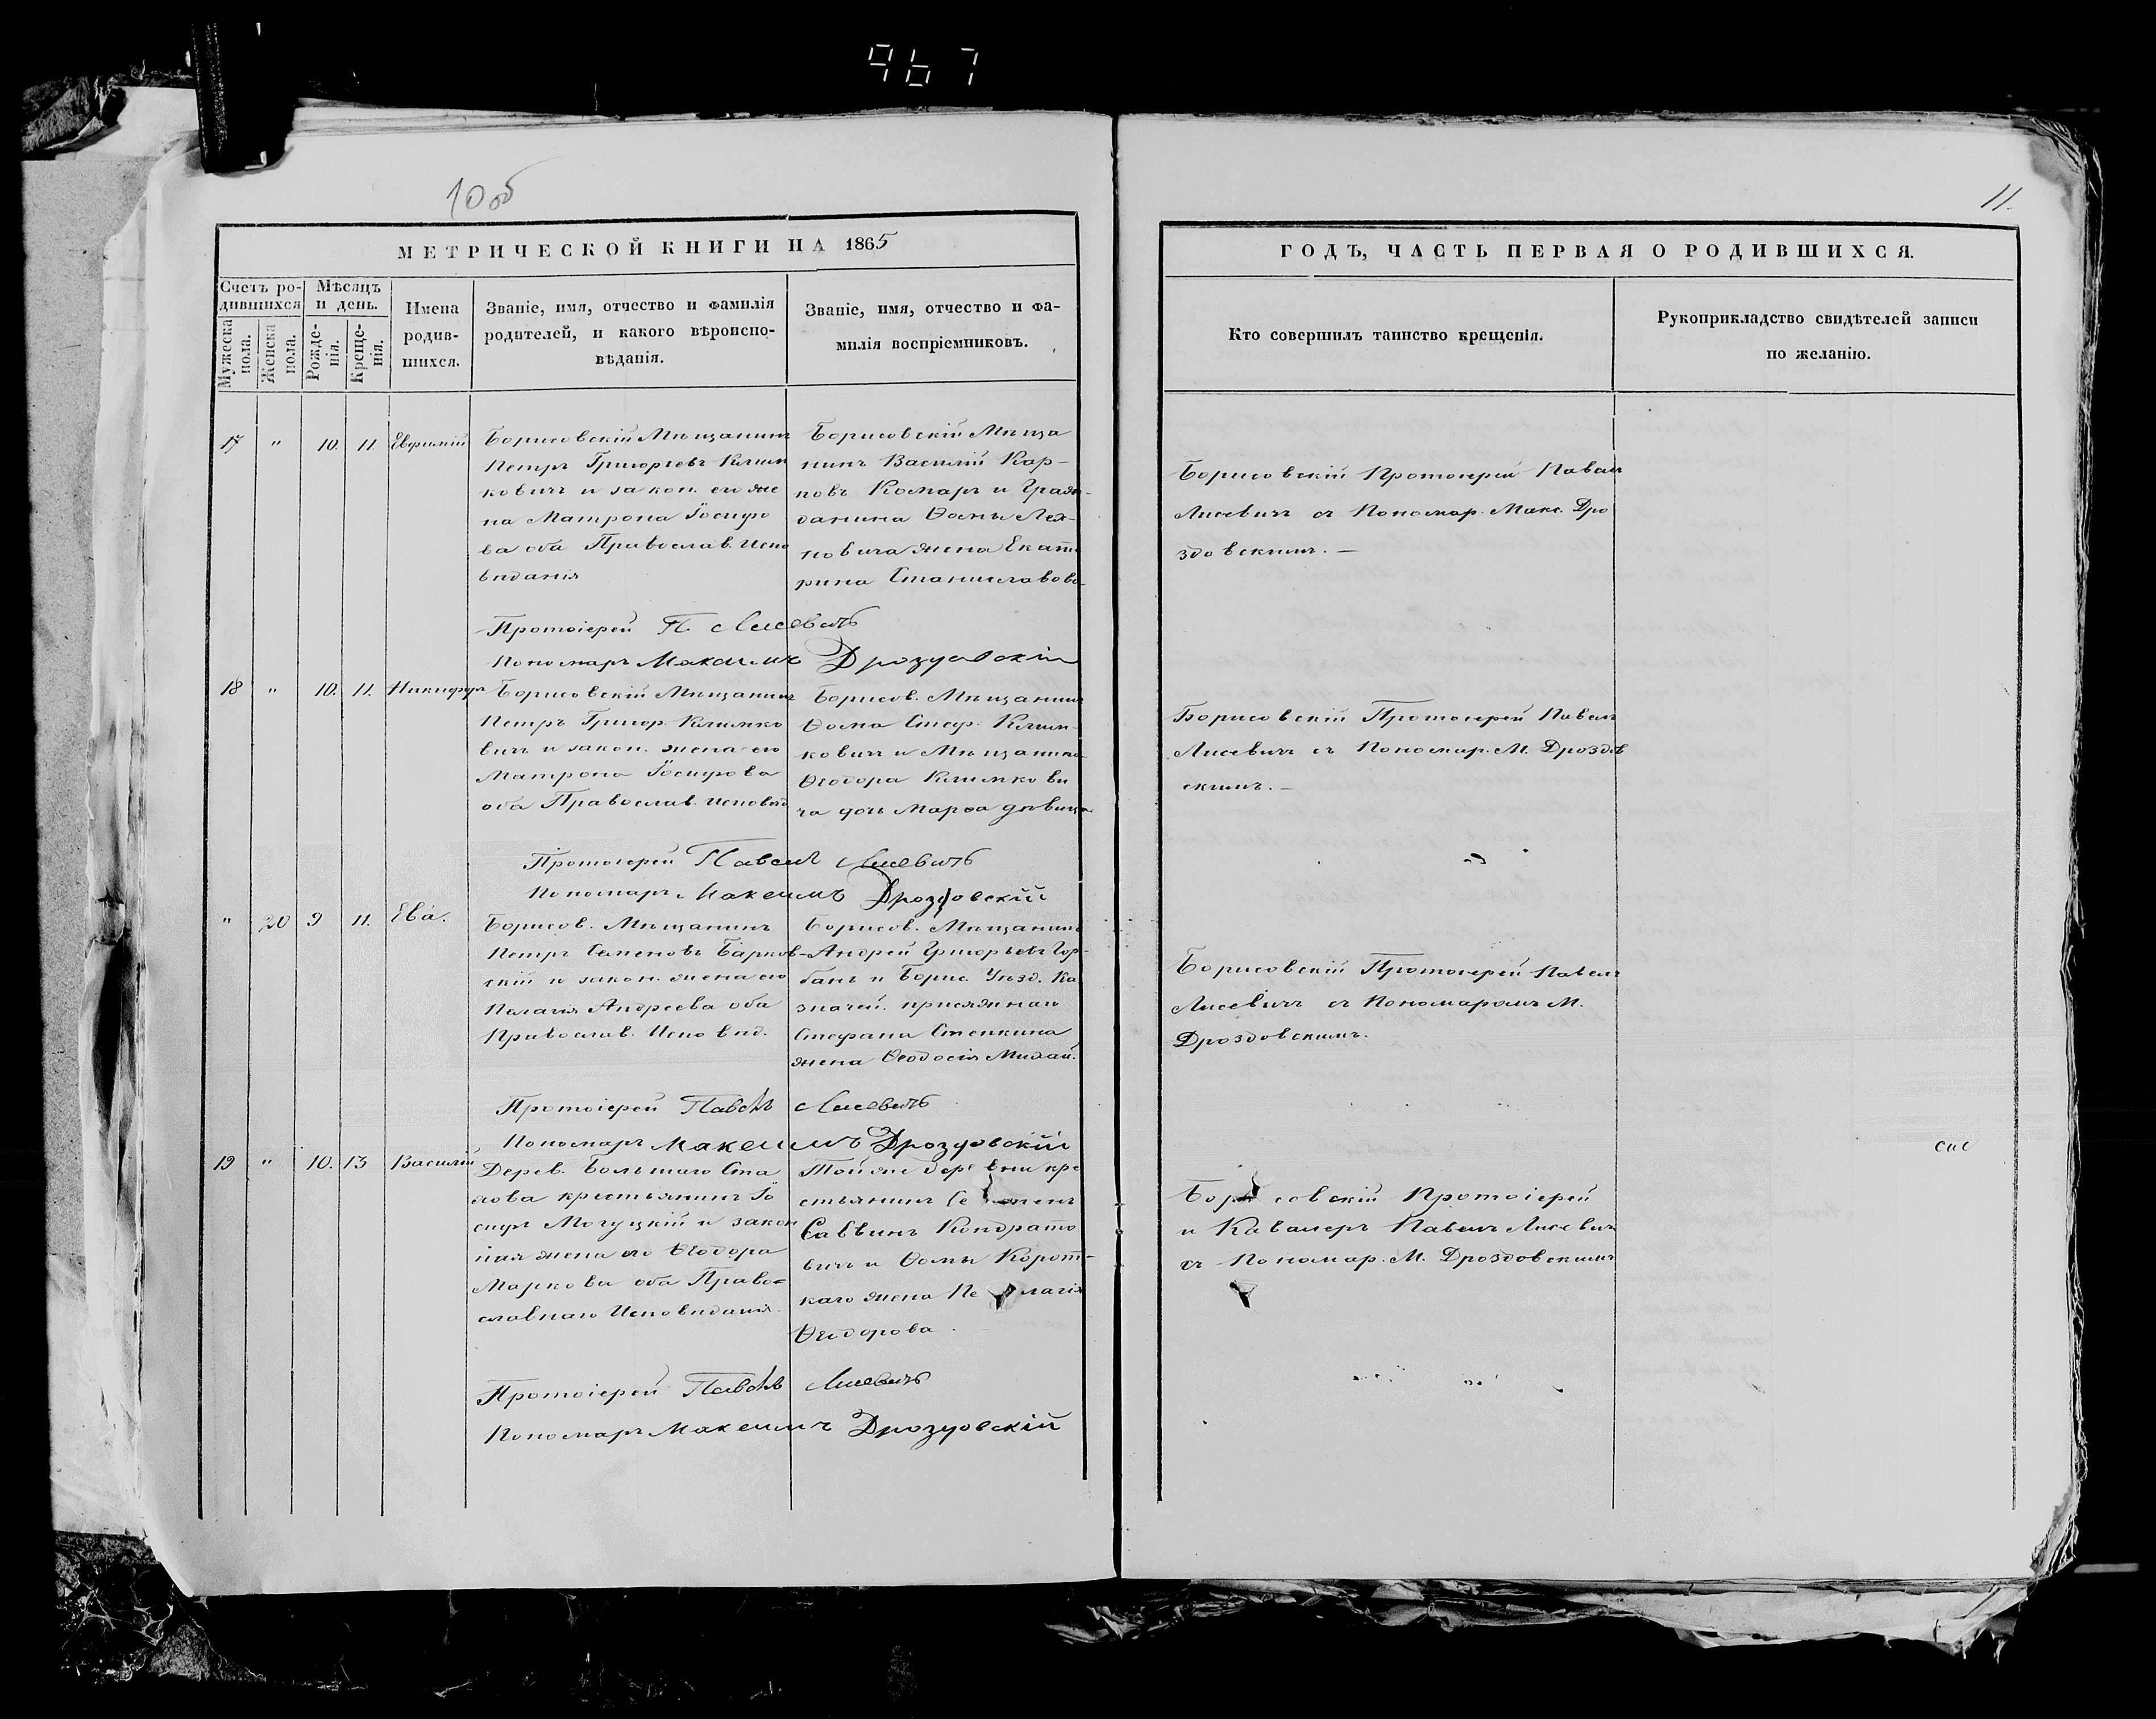 967
10 об
11.
МЕТРИЧЕСКОЙ КНИГИ НА 1865
ГОДЪ, ЧАСТЬ ПЕРВАЯ О РОДИВШИХСЯ.
Счетъ ро-
дившихся
Мужеска
пола.
Женска
пола.
Мѣсяцъ
и день.
Рожде-
нія.
Креще-
нія.
Имена
родив-
шихся.
Званіе, имя, отчество и фамилія
родителей, и какого вѣроиспо-
вѣданія.
Званіе, имя, отчество и фа-
милія воспріемниковъ.
Кто совершилъ таинство крещенія.
Рукоприкладство свидѣтелей записи
по желанію.
17 " 10. 11. Евфимій
Борисовскій Мѣщанинъ
Петръ Григорьевъ Клим
ковичъ и закон. его же
на Матрона Іосифо
ва оба Православ. Испо
вѣданія
Борисовскій Мѣща
нинъ Василій Кар-
повъ Комаръ и Граж-
данина Ѳомы Лех-
новича жена Екате
рина Станиславова
Борисовскій Протоіерей Павелъ
Лисевичъ съ Пономар. Макс. Дро
здовскимъ. —
Протоіерей П. Лисевичъ
Пономарь Максимъ Дроздовскій
18 " 10. 11. Никифоръ
Борисовскій Мѣщанинъ
Петръ Григор. Климко
вичъ и закон. жена его
Матрона Іосифова
оба Православ. Исповѣд
Борисов. Мѣщанинъ
Ѳома Стеф. Клим-
ковичъ и Мѣщанина
Ѳеодора Климкови
ча дочь Марѳа дѣвица
Борисовскій Протоіерей Павелъ
Лисевичъ съ Пономар. М. Дроздов
скимъ. —
Протоіерей Павелъ Лисевичъ
Пономарь Максимъ Дроздовскій
" 20 9 11. Ева.
Борисов. Мѣщанинъ
Петръ Семеновъ Барков-
скій и закон. жена его
Пелагія Андреева оба
Православ. Исповѣд.
Борисов. Мѣщанинъ
Андрей Григорьевъ Гор-
банъ и Борис. Уѣзд. Ка
значей. присяжнаго
Стефана Степкина
жена Ѳеодосія Михай.
Борисовскій Протоіерей Павелъ
Лисевичъ съ Пономаромъ М.
Дроздовскимъ.
Протоіерей Павелъ Лисевичъ
Пономарь Максимъ Дроздовскій
19 " 10. 13 Василій
Дерев. Большаго Ста
хова крестьянинъ Іо
сифъ Могуцкій и закон
ная жена его Ѳеодора
Маркова оба Право=
славнаго Исповѣданія.
Той же деревни кре
стьянинъ Семенъ
Саввинъ Кондрато
вичъ и Ѳомы Корот-
каго жена Пелагія
Ѳеодорова.
Борисовскій Протоіерей
и Кавалеръ Павелъ Лисевичъ
съ Пономар. М. Дроздовскимъ
Протоіерей Павелъ Лисевичъ
Пономарь Максимъ Дроздовскій